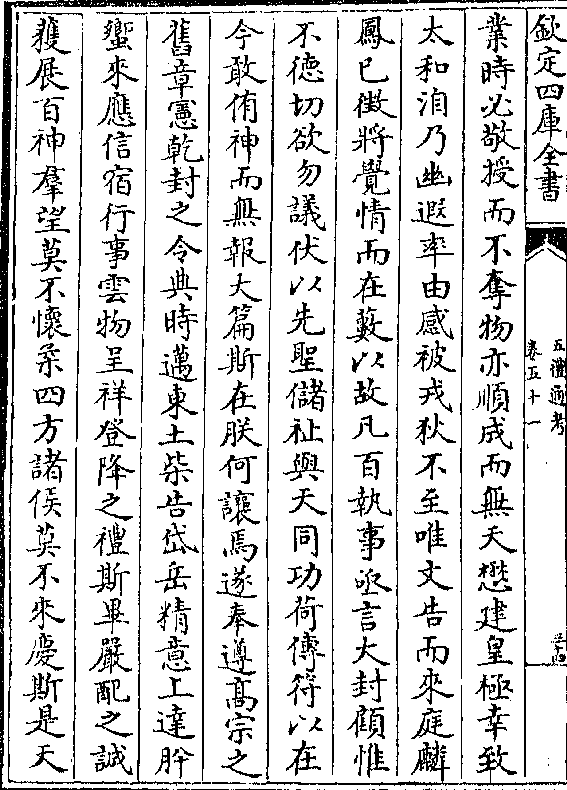 欽定四庫全書
五禮通考
卷五十一
業時必敬授而不奪物亦順成而無夭懋建皇極幸致
太和洎乃幽遐率由感被戎狄不至唯文告而來庭麟
鳳已徴將覺情而在藪以故凡百執事亟言大封顧惟
不德切欲勿議伏以先聖儲祉與天同功荷傳符以在
今敢侑神而無報大篇斯在朕何讓焉遂奉遵髙宗之
舊章憲乾封之令典時邁東土柴告岱岳精意上達肸
蠁來應信宿行事雲物呈祥登降之禮斯畢嚴配之誠
獲展百神羣望莫不懷柔四方諸侯莫不來慶斯是天